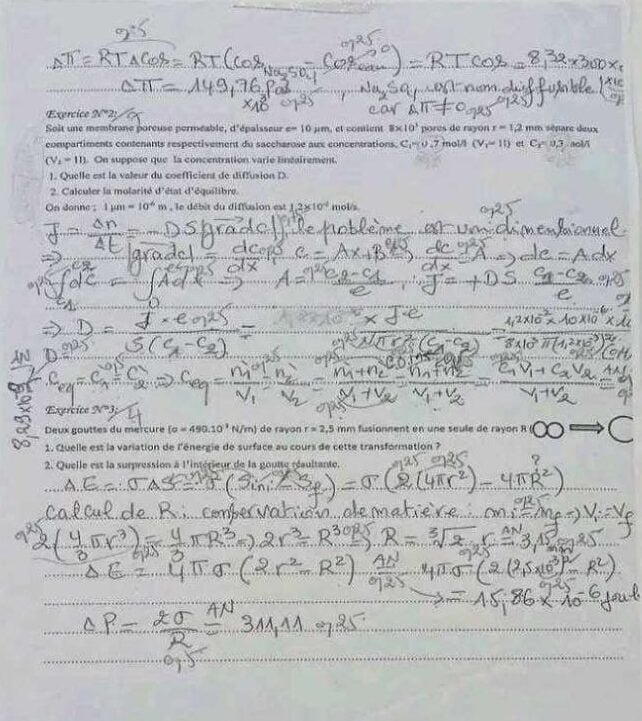 0,5
ΔΠ = RTΔCos = RT(Cos Na2SO4 - Cos eau) = RTCos = 8,32×300×
ΔΠ = 149,76 Pa ×10³ 0,25 , Na2SO4 est non diffusible
car ΔΠ≠0 0,25
Exercice N°2:
Soit une membrane poreuse perméable, d'épaisseur e= 10 µm, et contient 8×10³ pores de rayon r = 1,2 mm sépare deux
compartiments contenants respectivement du saccharose aux concentrations, C₁= 0,7 mol/l (V₁= 1l) et C₂= 0,3 mol/l
(V₂ = 1l). On suppose que la concentration varie linéairement.
1. Quelle est la valeur du coefficient de diffusion D.
2. Calculer la molarité d'état d'équilibre.
On donne ; 1 µm = 10⁻⁶ m , le débit du diffusion est 1,2×10⁻² mol/s.
J = Δn/Δt = - DS|gradc| , le problème est unidimensionnel
⇒ |gradc| = dc/dx , c = Ax+B , dc/dx = A ⇒ dc = A dx
∫dc = ∫Adx ⇒ A = c2-c1/e , J = +DS c1-c2/e
⇒ D = J·e / S(c1-c2) = J·e / Nπr²(c1-c2) = 1,2×10⁻²×10×10⁻⁶ / 8×10³π(1,2×10⁻³)²
D = 8,29×10
Ceq = C1 = C2 ⇒ Ceq = n1/V1 = n2/V2 = n1+n2/V1+V2 = n1+n2/V1+V2 = C1V1+C2V2/V1+V2 AN=
Exercice N°3: 4
Deux gouttes du mercure (σ = 490.10⁻³ N/m) de rayon r = 2,5 mm fusionnent en une seule de rayon R
1. Quelle est la variation de l'énergie de surface au cours de cette transformation ?
2. Quelle est la surpression à l'intérieur de la goutte résultante.
ΔE = σΔS = σ(Sini - Sf) = σ(2(4πr²) - 4πR²)
calcul de R : conservation de matière : mi = mf ⇒ Vi = Vf
2(4/3 πr³) = 4/3 πR³ ⇒ 2r³ = R³ ⇒ R = ∛2 · r AN= 3,15 mm 0,25
ΔE = 4πσ(2r² - R²) AN= 4πσ(2(2,5×10⁻³)² - R²)
= 15,86×10⁻⁶ joul
ΔP = 2σ/R AN= 311,11 0,25
0,5